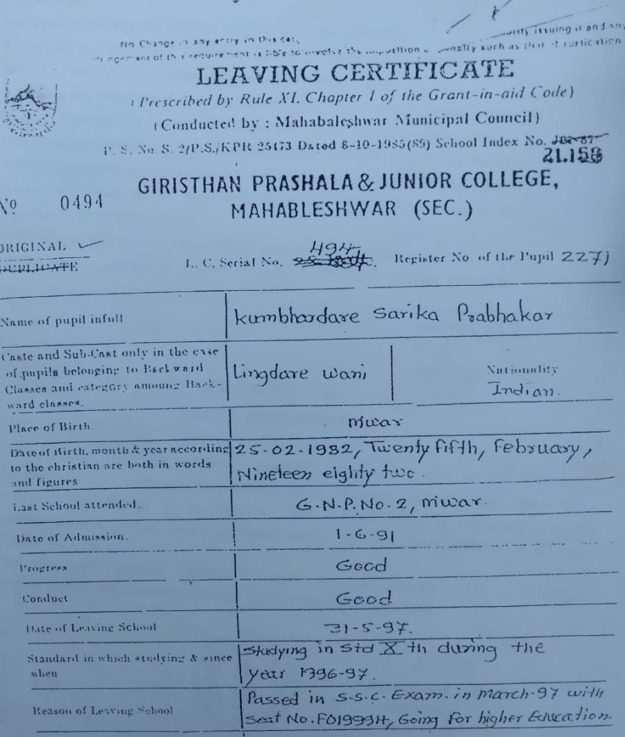 No Change in any entry in this
LEAVING CERTIFICATE
(Prescribed by Rule XI. Chapter 1 of the Grant-in-aid Code)
(Conducted by : Mahabaleshwar Municipal Council)
P. S. No. S. 2/P.S./KPR 25473 Dated 8-10-1985(89) School Index No.
21.15
GIRISTHAN PRASHALA & JUNIOR COLLEGE,
MAHABLESHWAR (SEC.)
No 0494
ORIGINAL
DUPLICATE
L. C. Serial No. 494 Register No. of the Pupil 227j
Name of pupil infull Kumbhardare Sarika Prabhakar
Caste and Sub-Cast only in the case
of pupils belonging to Back ward Lingdare wani, Nationality
Classes and category amoung Back- Indian.
ward classes.
Place of Birth mwar
Date of Birth, month & year according 25-02-1982, Twenty fifth, February,
to the christian are both in words Nineteen eighty two.
and figures
Last School attended. G.N.P.No.2, mwar.
Date of Admission. 1-6-91
Progress Good
Conduct Good
Date of Leaving School 31-5-97.
Standard in which studying & since studying in std X th during the
when year 1996-97.
Reason of Leaving School Passed in S.S.C. Exam. in march-97 with
seat No. Going for higher Education.